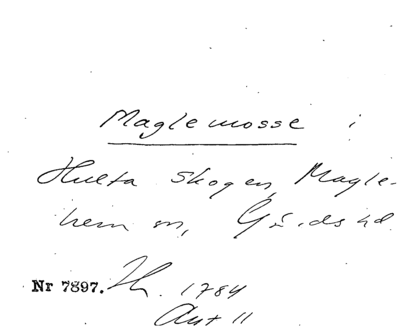 Maglemosse i
Hulta skogen, Magle-
hem sn, Gärds hd
Nr 7897. Th. 1784
Akt 11